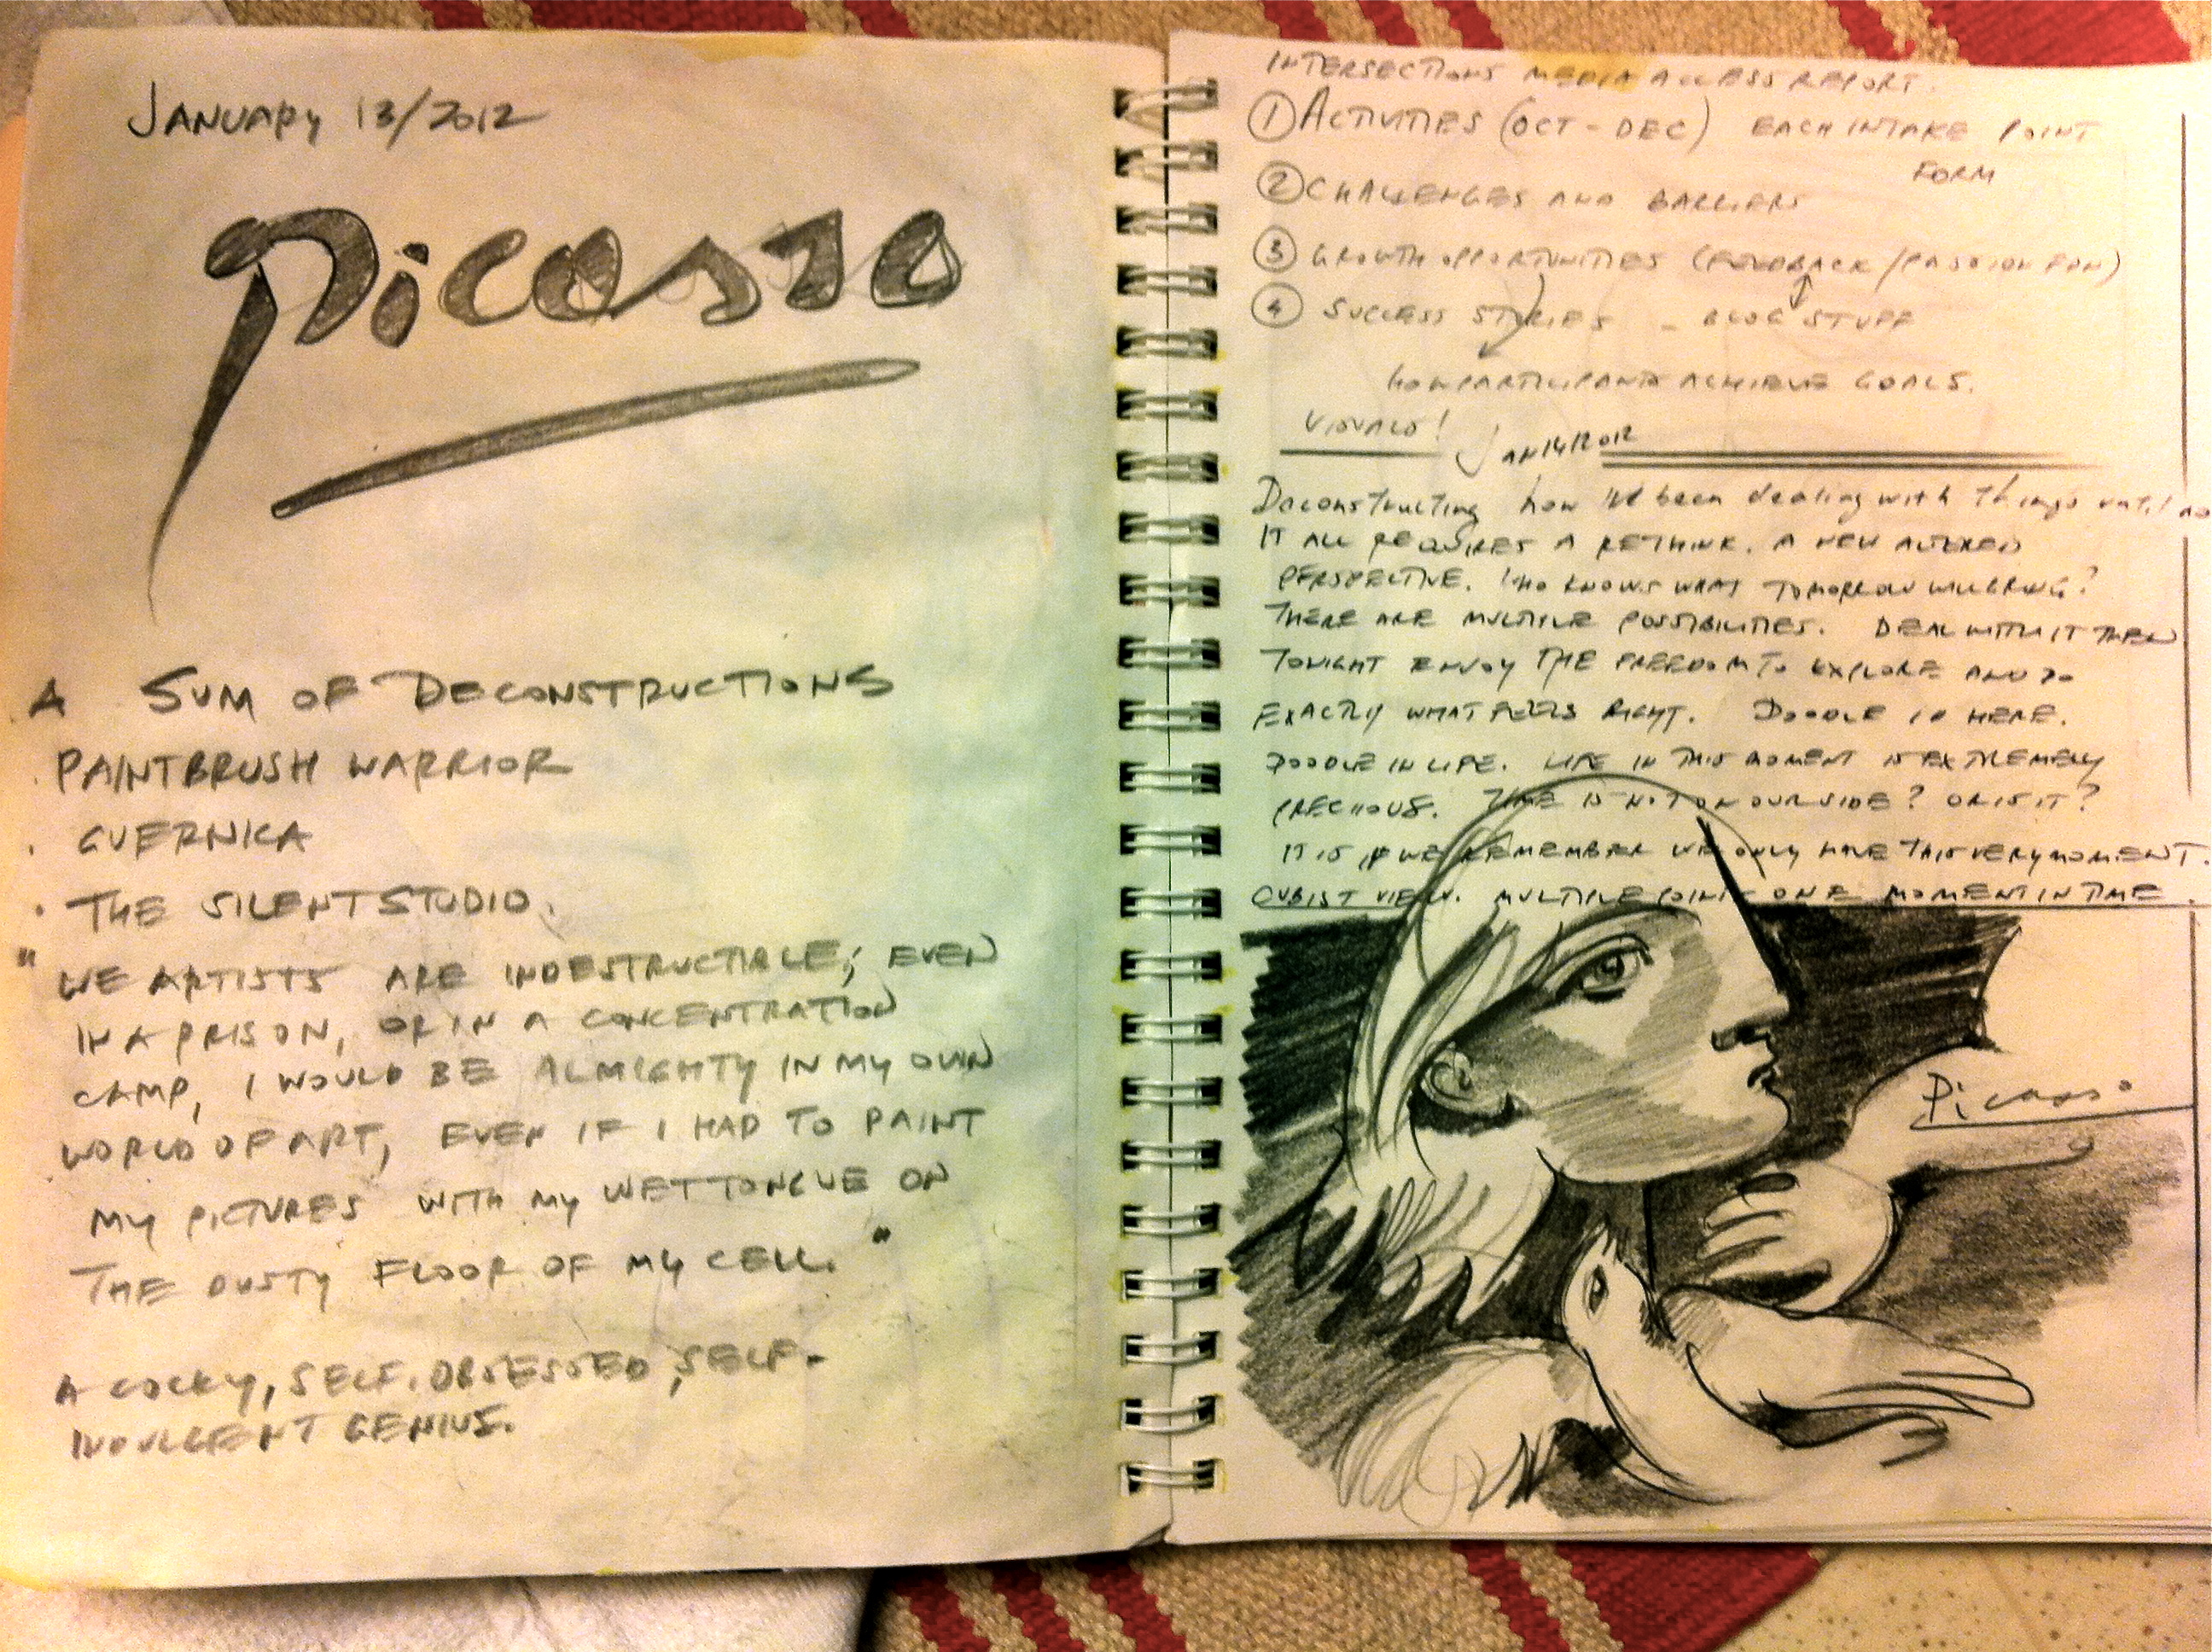 JANUARY 13/2012
Picasso
A SUM OF DECONSTRUCTIONS
PAINTBRUSH WARRIOR
· GUERNICA
· THE SILENT STUDIO.
"WE ARTISTS ARE INDESTRUCTIBLE; EVEN
IN A PRISON, OR IN A CONCENTRATION
CAMP, I WOULD BE ALMIGHTY IN MY OWN
WORLD OF ART, EVEN IF I HAD TO PAINT
MY PICTURES WITH MY WET TONGUE ON
THE DUSTY FLOOR OF MY CELL."
A COCKY, SELF-OBSESSED, SELF-
INDULGENT GENIUS.
INTERSECTIONS MEDIA ACCESS REPORT.
① ACTIVITIES (OCT - DEC) EACH INTAKE POINT
FORM
② CHALLENGES AND BARRIERS
③ GROWTH OPPORTUNITIES (FEEDBACK /
④ SUCCESS STORIES - BLOG STUFF
HOW PARTICIPANTS ACHIEVE GOALS.
VISUALS!
JAN 14/2012
Deconstructing how I've been dealing with things until
IT ALL REQUIRES A RETHINK. A NEW ALTERED
PERSPECTIVE. WHO KNOWS WHAT TOMORROW WILL BRING?
THERE ARE MULTIPLE POSSIBILITIES. DEAL WITH IT THEN
TONIGHT ENJOY THE FREEDOM TO EXPLORE AND DO
EXACTLY WHAT FEELS RIGHT. DOODLE IN HERE.
DOODLE IN LIFE. LIFE IN THIS MOMENT IS EXTREMELY
PRECIOUS. TIME IS NOT ON OUR SIDE? OR IS IT?
IT IS IF WE REMEMBER WE ONLY HAVE THIS VERY MOMENT.
CUBIST VIEW. MULTIPLE POINTS ONE MOMENT IN TIME.
Picasso